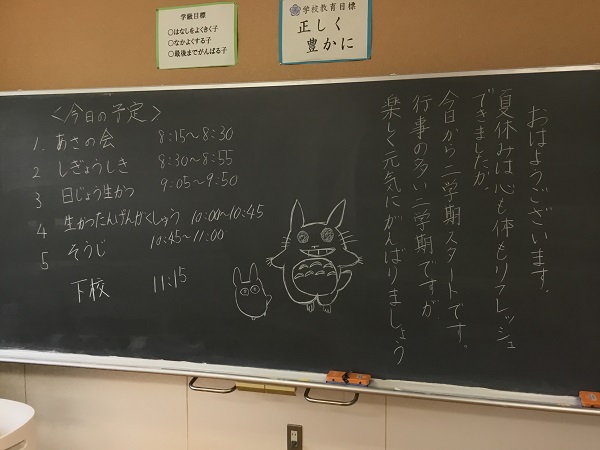 学級目標
○はなしをよくきく子
○なかよくする子
○最後までがんばる子
学校教育目標
正しく
豊かに
<今日の予定>
1. あさの会 8:15~8:30
2 しぎょうしき 8:30~8:55
3 日じょう生かつ 9:05~9:50
4 生かつたんげんがくしゅう 10:00~10:45
5 そうじ 10:45~11:00
下校 11:15
おはようございます。
夏休みは心も体もリフレッシュ
できましたか。
今日から二学期スタートです。
行事の多い二学期ですが、
楽しく元気にがんばりましょう